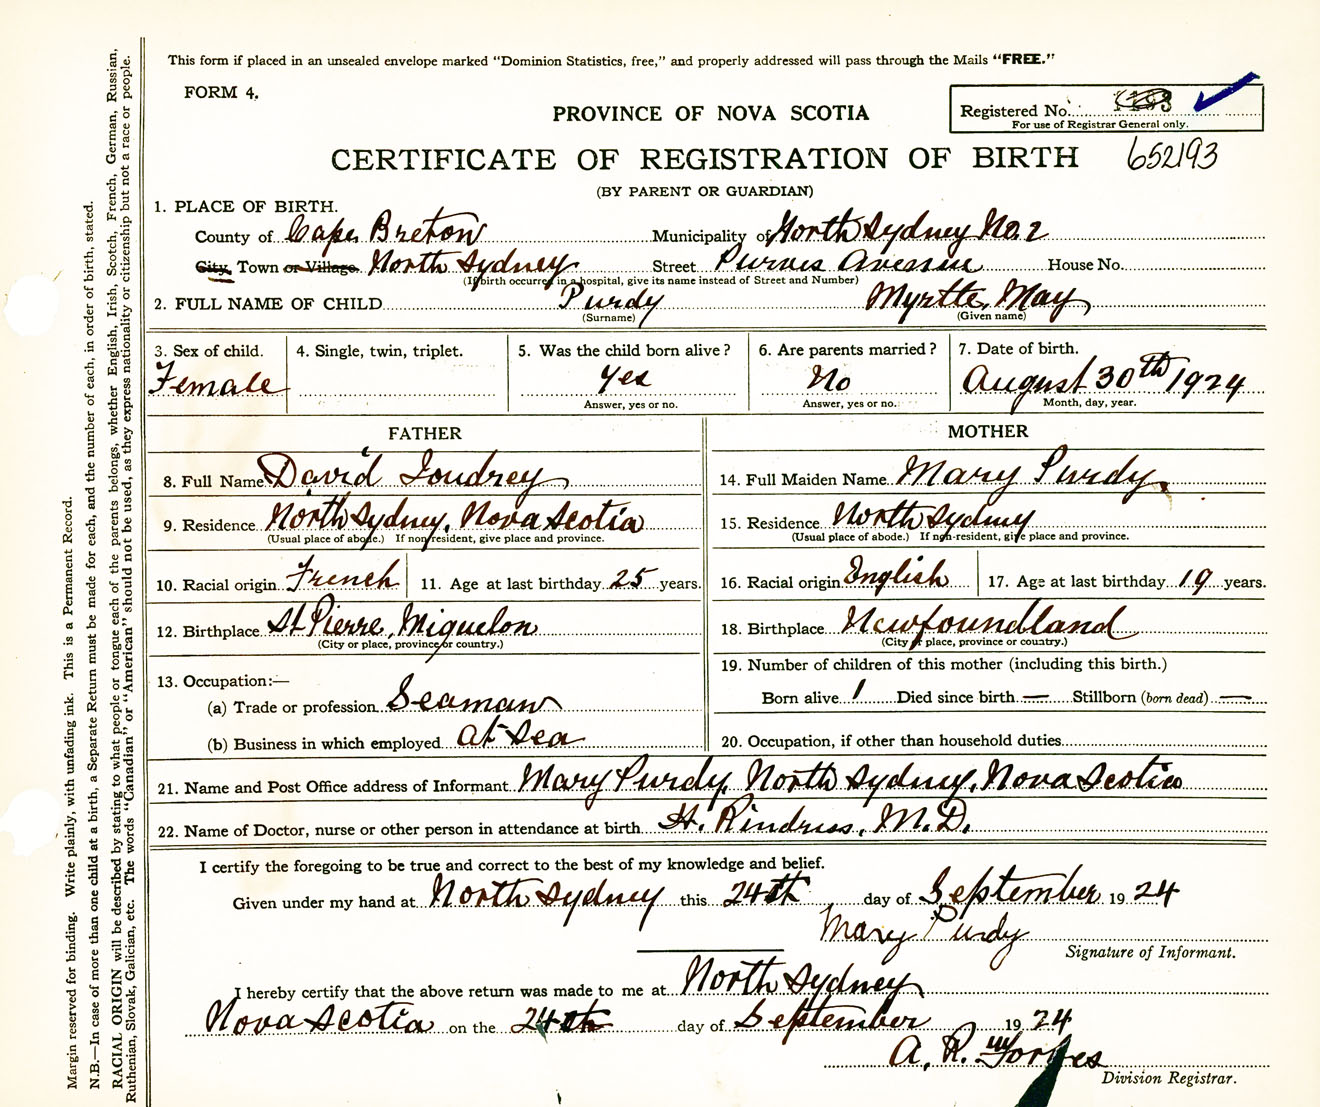 This form if placed in an unsealed envelope marked "Dominion Statistics, free," and properly addressed will pass through the Mails "FREE."
FORM 4.
Registered No.
For use of Registrar General only.
PROVINCE OF NOVA SCOTIA
CERTIFICATE OF REGISTRATION OF BIRTH 652193
(BY PARENT OR GUARDIAN)
1. PLACE OF BIRTH.
County of Cape Breton Municipality of North Sydney No. 2
City, Town or Village North Sydney Street Purves Avenue House No.
(If birth occurred in a hospital, give its name instead of Street and Number)
2. FULL NAME OF CHILD Purdy Myrtle May
(Surname) (Given name)
3. Sex of child. 4. Single, twin, triplet. 5. Was the child born alive? 6. Are parents married? 7. Date of birth.
Female Yes No August 30th 1924
Answer, yes or no. Answer, yes or no. Month, day, year.
FATHER MOTHER
8. Full Name David 14. Full Maiden Name Mary Purdy
9. Residence North Sydney, Nova Scotia 15. Residence North Sydney
(Usual place of abode.) If non-resident, give place and province. (Usual place of abode.) If non-resident, give place and province.
10. Racial origin French 11. Age at last birthday 25 years. 16. Racial origin English 17. Age at last birthday 19 years.
12. Birthplace St Pierre, Miquelon 18. Birthplace Newfoundland
(City or place, province or country.) (City or place, province or country.)
19. Number of children of this mother (including this birth.)
13. Occupation:—
(a) Trade or profession Seaman Born alive 1 Died since birth — Stillborn (born dead) —
(b) Business in which employed at Sea 20. Occupation, if other than household duties
21. Name and Post Office address of Informant Mary Purdy, North Sydney, Nova Scotia
22. Name of Doctor, nurse or other person in attendance at birth H. M.D.
I certify the foregoing to be true and correct to the best of my knowledge and belief.
Given under my hand at North Sydney this 24th day of September 1924
Mary Purdy
Signature of Informant.
I hereby certify that the above return was made to me at North Sydney
Nova Scotia on the 24th day of September 1924
A. R. Forbes
Division Registrar.
Margin reserved for binding. Write plainly, with unfading ink. This is a Permanent Record.
N.B.—In case of more than one child at a birth, a Separate Return must be made for each, and the number of each, in order of birth, stated.
RACIAL ORIGIN will be described by stating to what people or tongue each of the parents belongs, whether English, Irish, Scotch, French, German, Russian,
Ruthenian, Slovak, Galician, etc. The words "Canadian" or "American" should not be used, as they express nationality or citizenship but not a race or people.